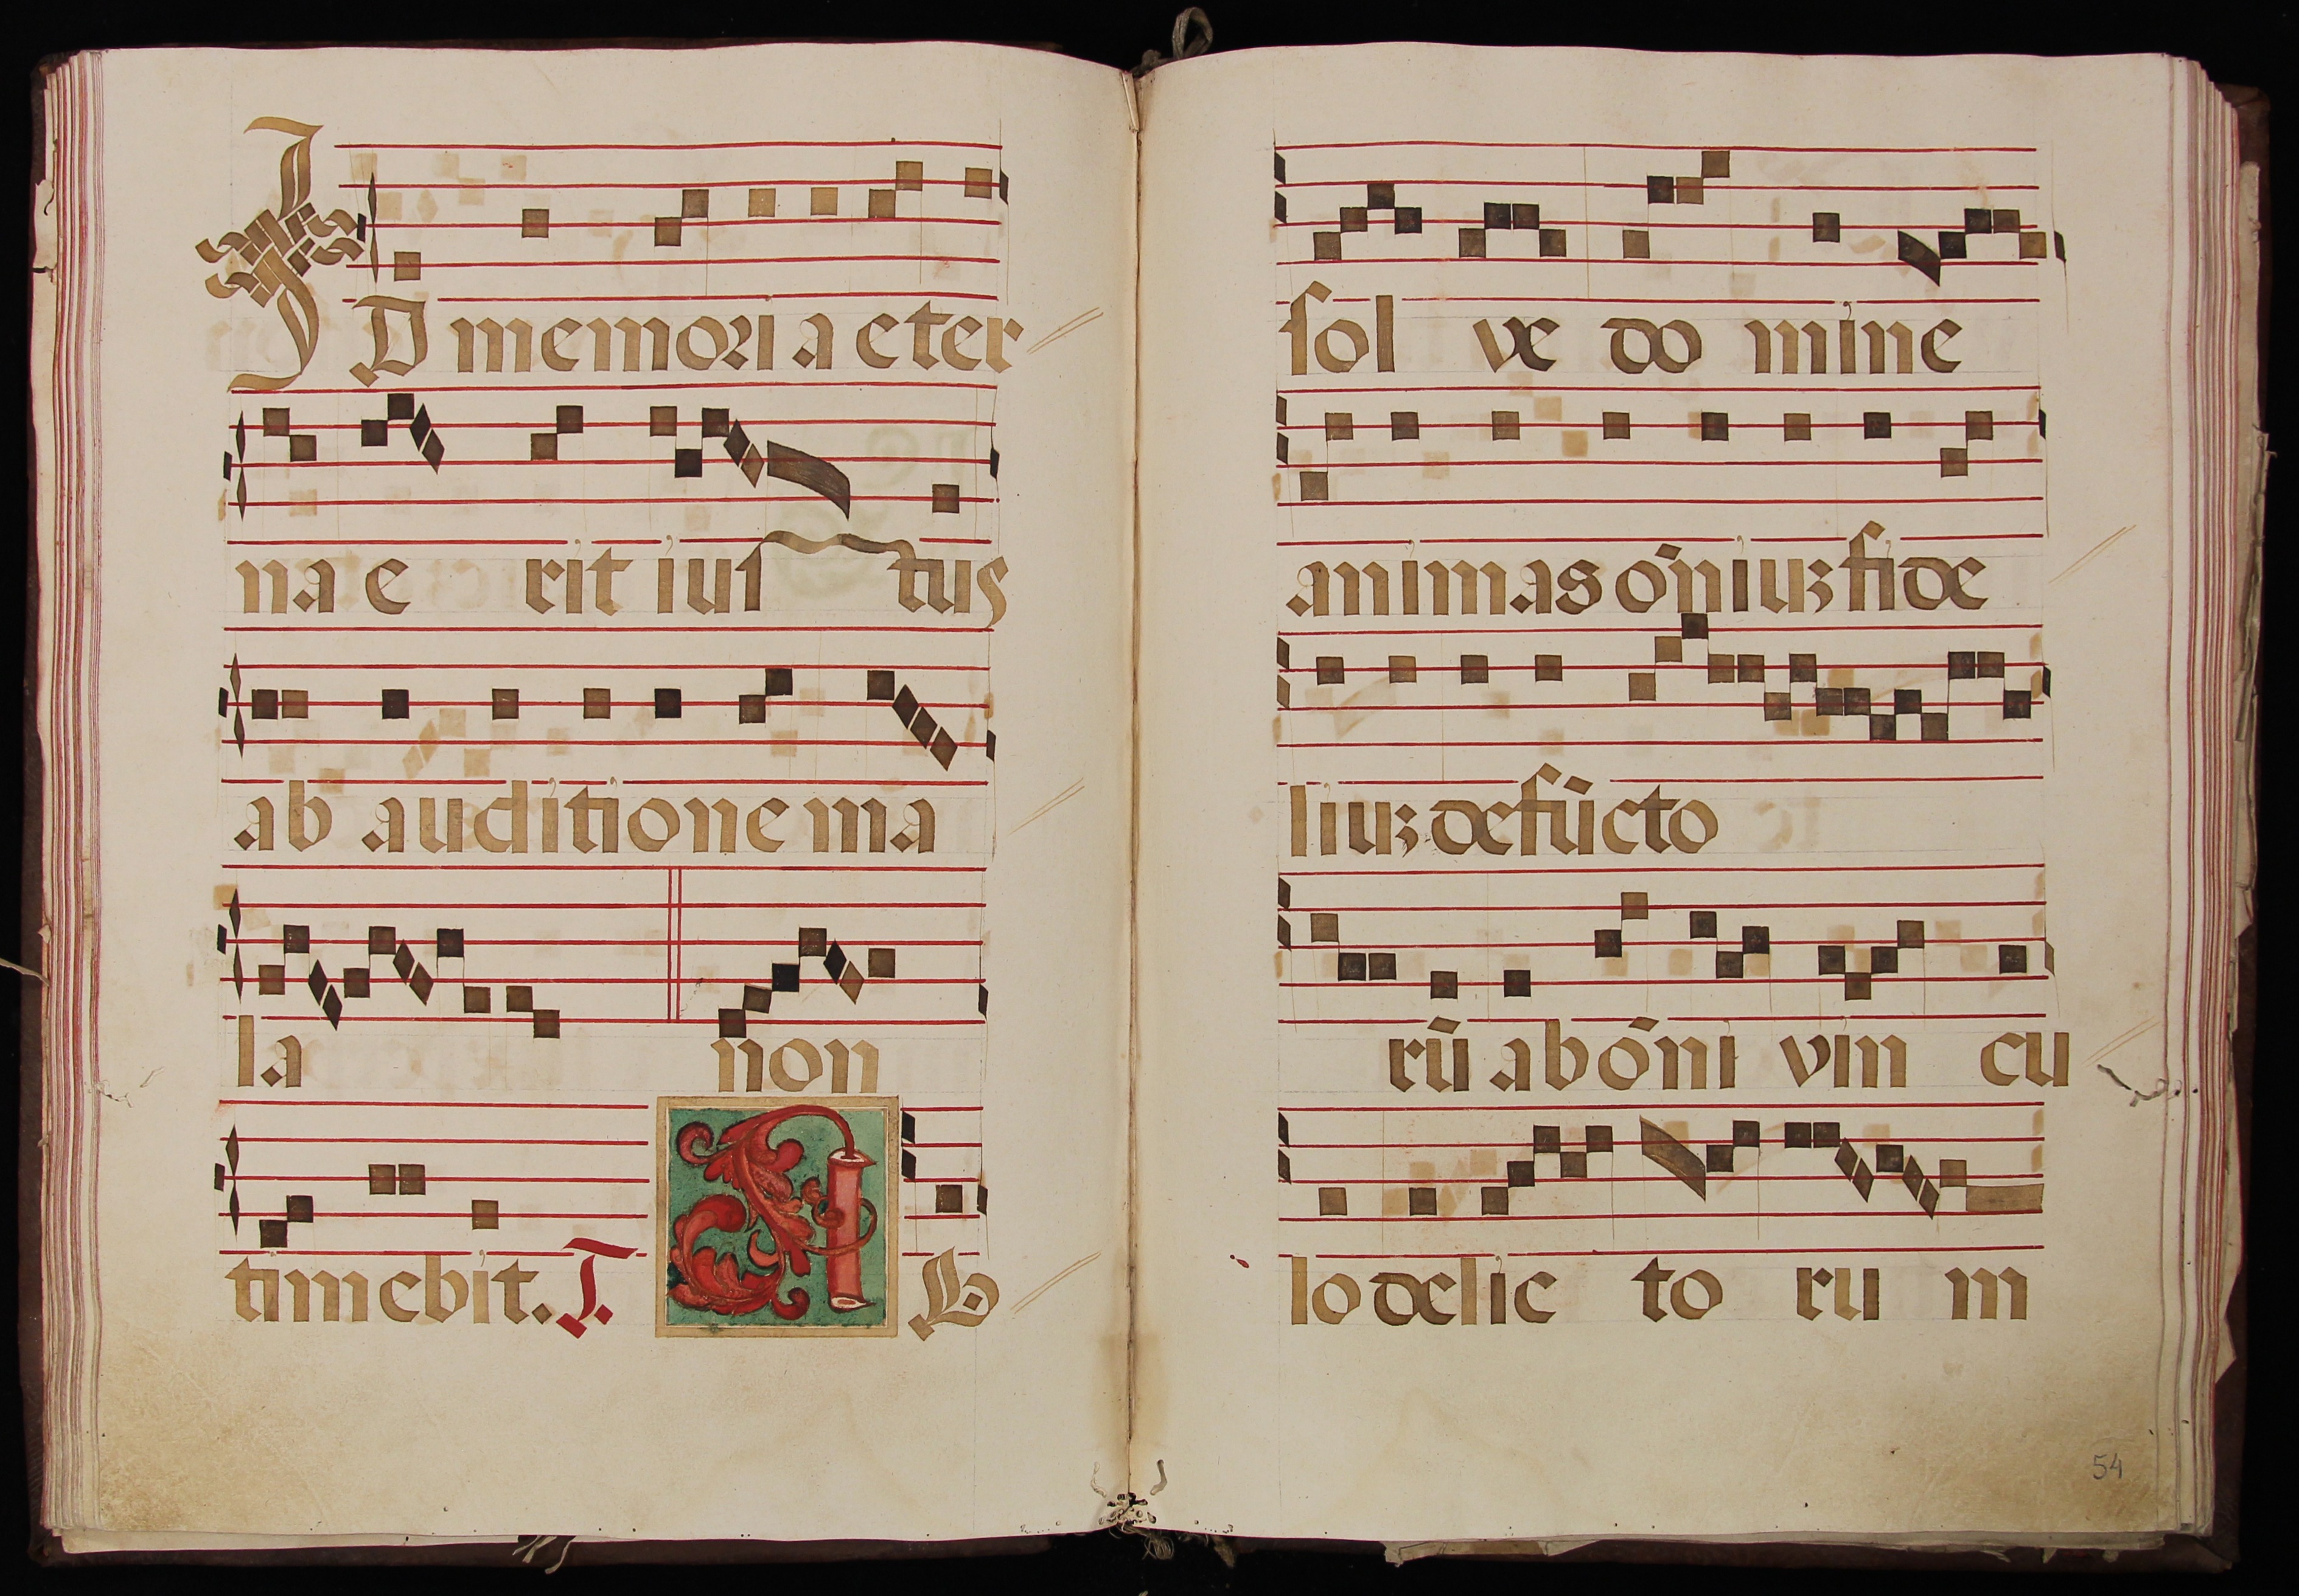 ID memoria eter
na e rit ius tus
ab auditione ma
la non
timebit. T. A B
sol ve do mine
animas oñiuz fide
liuz defūcto
rū ab oñi vin cu
lo delic to ru m
54